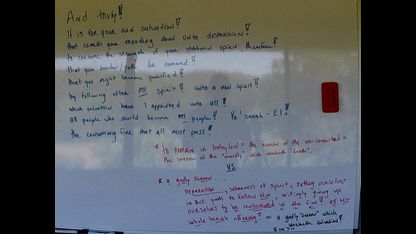 And truly!!
It is for your own salvation!!
that cometh your treading down unto destruction!!
to consume the strength of your spirit, therefore!
that your burden/yoke be removed!!
that you might become purified!!
by following after MY spirit!! unto a new spirit!!
which salvation have I appointed unto all!!
all people who should become MY people!! Ye'sarah-El!!
the consuming fire that all must pass!!
* to remain in babylon = the sorrow of the un-converted =
the sorrow of the "worldly" which worketh "death".
VS.
* a godly sorrow...
separation, of spirit, setting ourselves
in His path to follow Him, willingly giving up
ourselves to be consumed in the fire!! as HIS
whole burnt offering!! = a godly "sorrow" which
worketh salvation!!